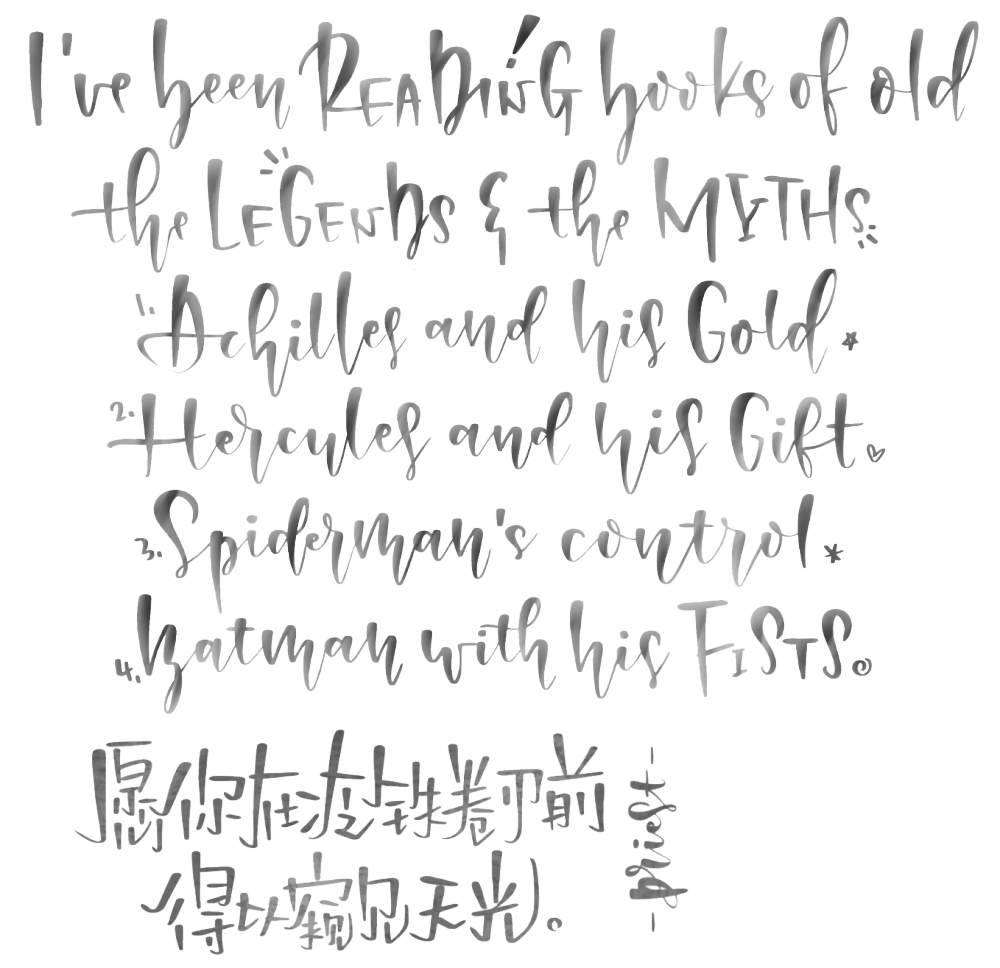 I've been READING books of old
the LEGENDS & the MYTHS
1. Achilles and his Gold.
2. Hercules and his Gift.
3. Spiderman's control.
4. Batman with his FISTS.
愿你在冷铁卷刃前
得以窥见天光。
-priest-